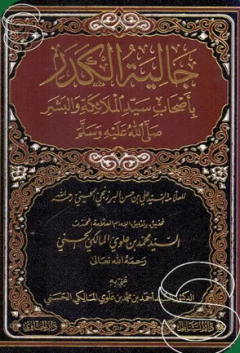 جالية الكدر
بأصحاب سيد الملائكة والبشر
صلى الله عليه وسلم
للعلامة السيد علي بن حسن البرزنجي الحسيني رحمه الله
تحقيق وتعليق الإمام العلامة المحدث
السيد محمد بن علوي المالكي الحسني
رحمه الله تعالى
أحمد بن محمد بن علوي المالكي الحسني